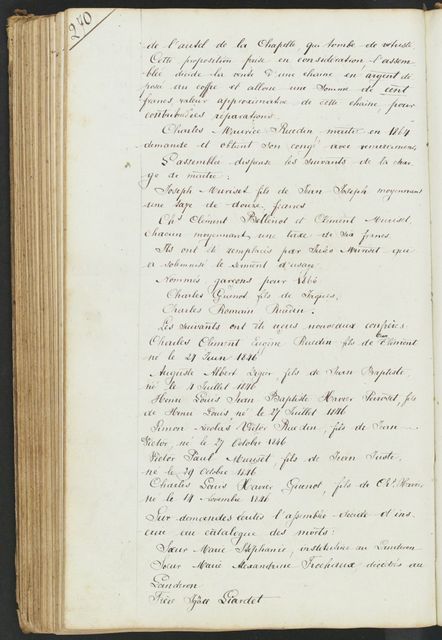 270
de l'autel de la Chapelle qui tombe de vétusté
Cette proposition prise en considération l'assem-
blée décide la vente d'une chaine en argent dé-
posée au coffre et alloue une somme de cent
francs valeur approximative de cette chaine, pour
contribuer réparations.
Charles Maurice Ruedin maitre en 1864
demande et obtient son congé avec remerciemens.
L'assemblée dispense les suivants de la char-
ge de maitre:
Joseph Muriset fils de Jean Joseph moyennant
une taxe de douze francs
Chs Clément Bellenot et Clément Muriset
chacun moyennant une taxe de six francs.
Ils ont été remplacés par Muriset qui
a solemnisé le serment d'usage.
Nommés garçons pour 1866
Charles Guenot fils de Jaques.
Charles Romain Ruedin.
Les suivants ont été reçus nouveaux confrères
Charles Clément Eugène Ruedin fils de Clément
né le 24 Juin 1846
Auguste Albert fils de Jean Baptiste,
né le 4 Juillet 1846
Henri Louis Jean Baptiste Xavier Perroset, fils
de Henri Louis, né le 27 Juillet 1846
Simon Nicolas Victor Ruedin, fils de Jean
Victor, né le 27 Octobre 1846
Victor Paul Muriset, fils de Jean
né le 29 Octobre 1846
Charles Louis Xavier Guenot, fils de Chs
né le 14 Novembre 1846
Sur demandes écrites l'assemblée décide d'ins-
crire au catalogue des morts:
Sœur Marie Stéphanie, institutrice au Landeron
Sœur Marie Alexandrine Frochaux décédées au
Landeron
Frère Girardet